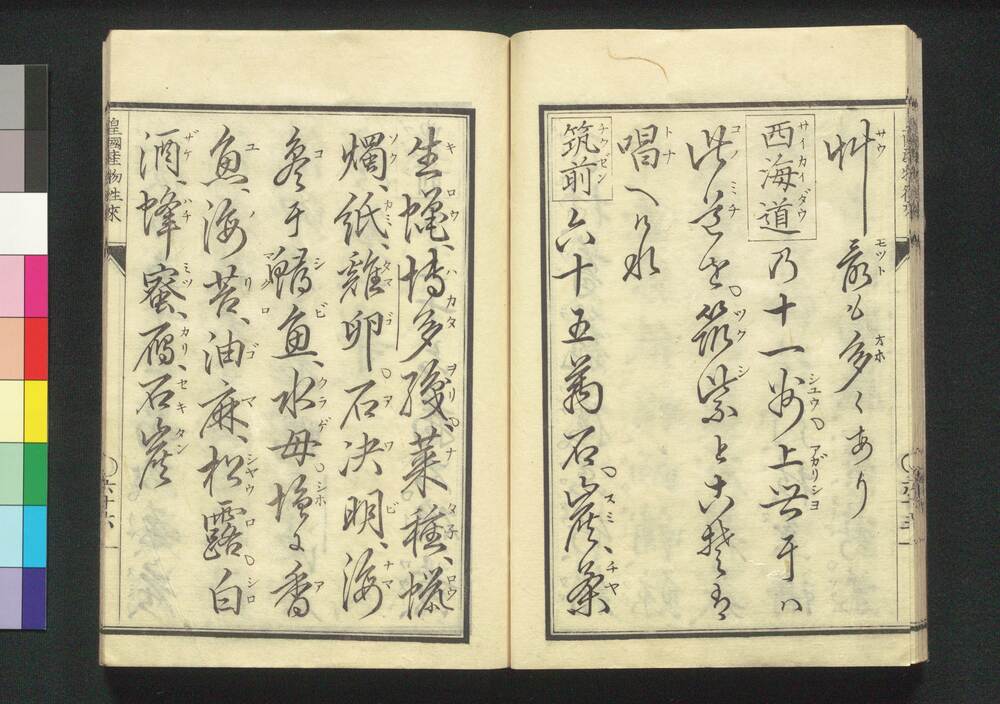 艸最も多くあり
西海道乃十一州。上世于ハ
此道を。筑紫と古そは
唱へけれ
筑前 六十五萬石。炭、茶
生蝋、博多織。菜種、蝋
燭、紙、雞卵。石决明、海
參于鮪魚、水母。塩に香
魚、海苔、油麻、松露。白
酒、蜂蜜、鴈、石炭
皇國産物往來
六十六